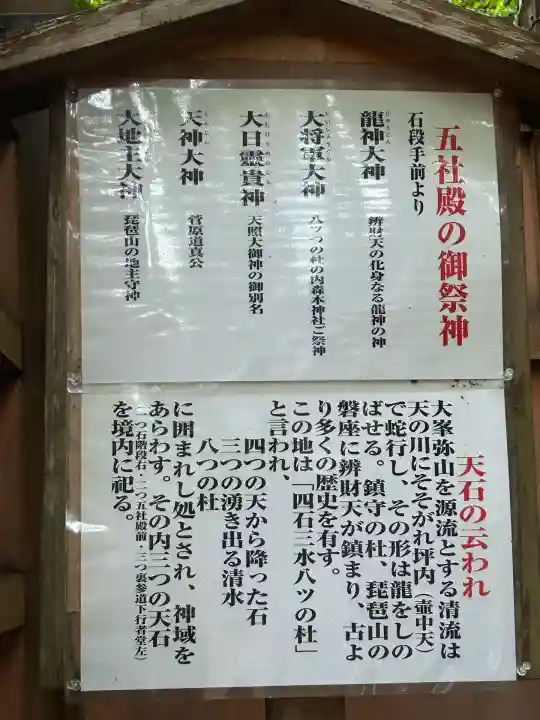 五社殿の御祭神
石段手前より
龍神大神 辨財天の化身なる龍神の神
大将軍大神 八ツつの社の内森本神社ご祭神
大日霊貴神 天照大御神の御別名
天神大神 菅原道真公
大地主大神 琵琶山の地主守神
天石の云われ
大峯弥山を源流とする清流は
天の川にそそがれ坪内(壷中天)
で蛇行し、その形は龍をしの
ばせる。鎮守の杜、琵琶山の
磐座に辨財天が鎮まり、古よ
り多くの歴史を有す。
この地は「四石三水八ツの杜」
と言われ、
四つの天から降った石
三つの湧き出る清水
八つの杜
に囲まれし処とされ、神域を
あらわす。その内三つの天石
を境内に祀る。
(一つ石階段右・二つ五社殿前・三つ裏参道下行者堂左)